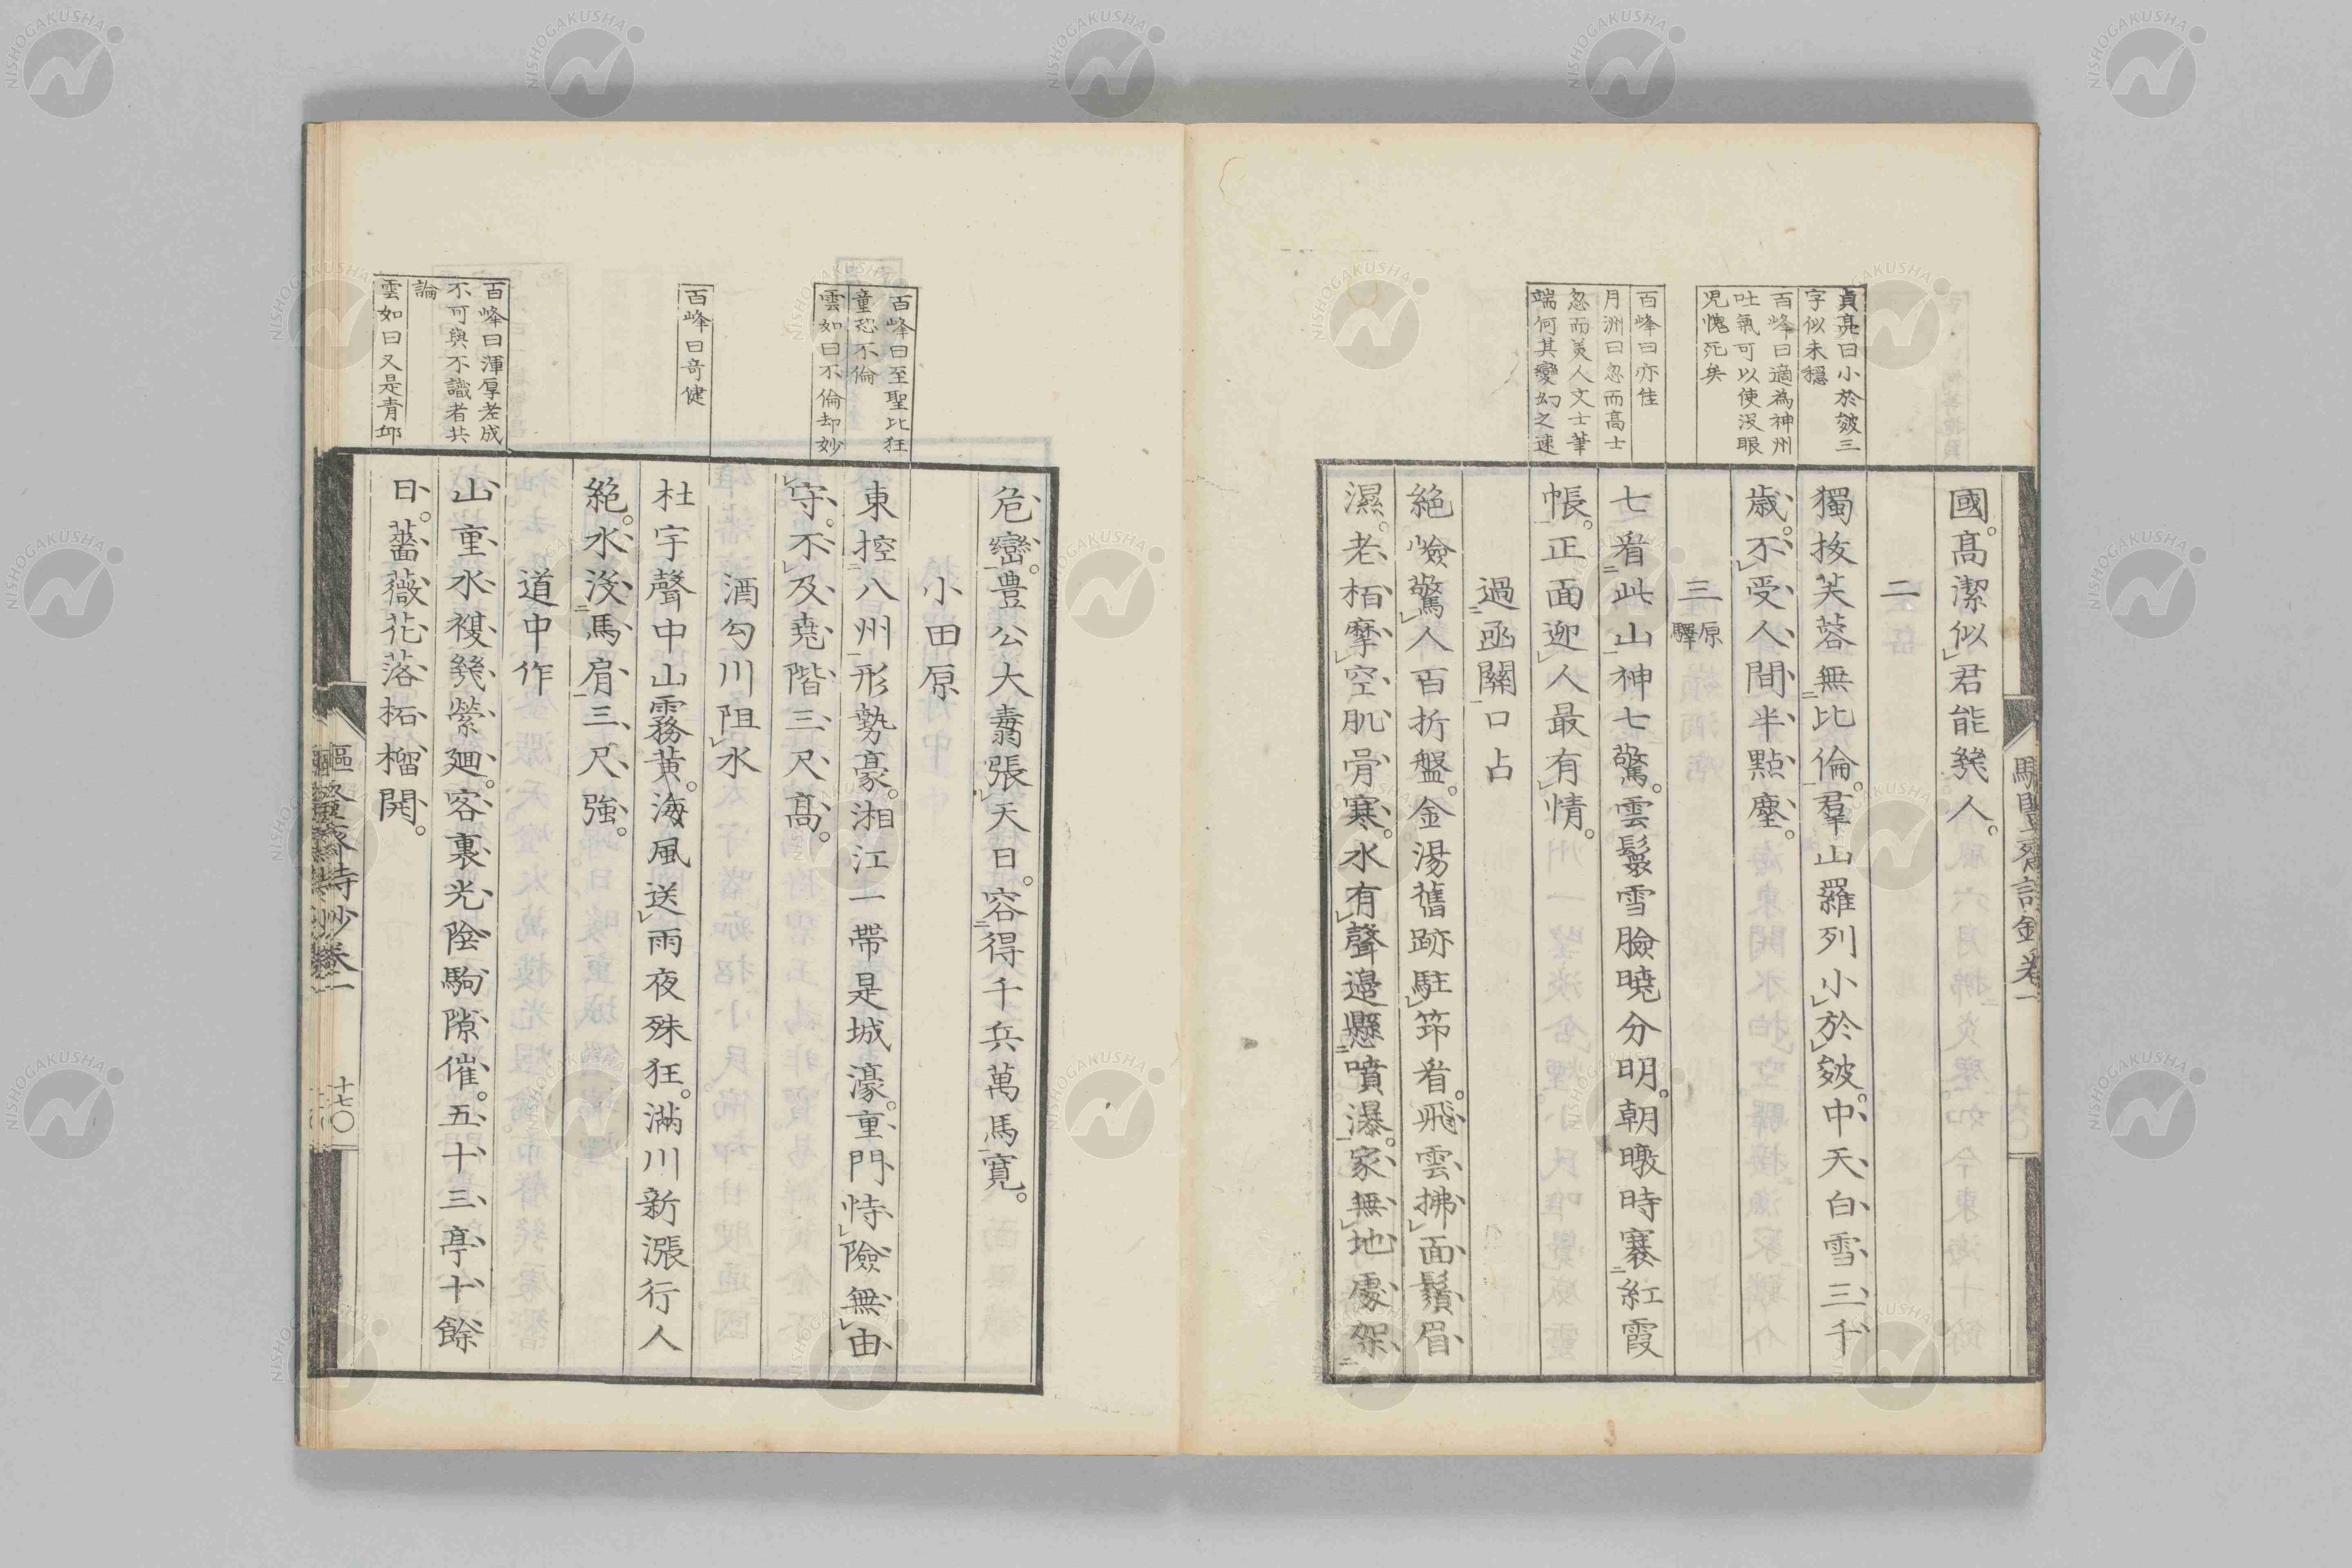 貞亮曰小於皴三
字似未穩
百峰曰適為神州
吐氣可以使沒眼
児愧死矣
百峰曰亦佳
月洲曰忽而高士
忽而美人文士筆
端何其變幻之速
國。高潔似君能幾人。
二
獨拔芙蓉無比倫。羣山羅列小於皴。中天白雪三千
歳。不受人間半點塵。
三 原驛
七看此山神七驚。雲鬟雪臉曉分明。朝暾時褰紅霞
帳。正面迎人最有情。
過函關口占
絕嶮驚人百折盤。金湯舊跡駐筇看。飛雲拂面鬚眉
濕。老栢摩空肌骨寒。水有聲邊懸噴瀑。家無地處架
百峰曰至聖比狂
童恐不倫
雲如曰不倫却妙
百峰曰奇健
百峰曰渾厚老成
不可與不識者共
論
雲如曰又是青邱
危巒。豊公大纛張天日。容得千兵萬馬寬。
小田原
東控八州形勢豪。湘江一帶是城濠。重門恃險無由
守。不及堯階三尺高。
酒勾川阻水
杜宇聲中山霧黃。海風送雨夜殊狂。滿川新漲行人
絕。水沒馬肩三尺強。
道中作
山重水複幾縈廻。客裏光陰駒隙催。五十三亭十餘
日。薔薇花落柘榴開。
十七
NISHOGAKUSHA